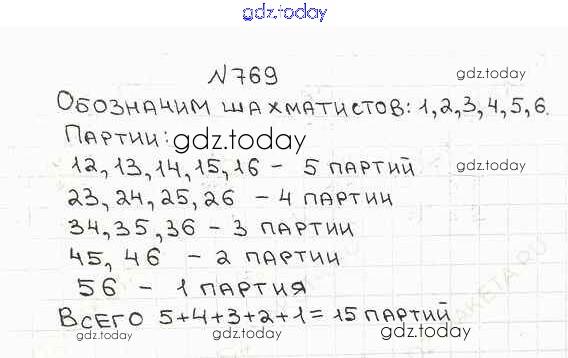 gdz.today
№769
gdz.today
Обозначим шахматистов: 1,2,3,4,5,6.
Партии:
gdz.today
12,13,14,15,16 - 5 партий
gdz.today
23,24,25,26 - 4 партии
34,35,36 - 3 партии
45,46 - 2 партии
56 - 1 партия
Всего 5+4+3+2+1=15 партий
gdz.today
gdz.today